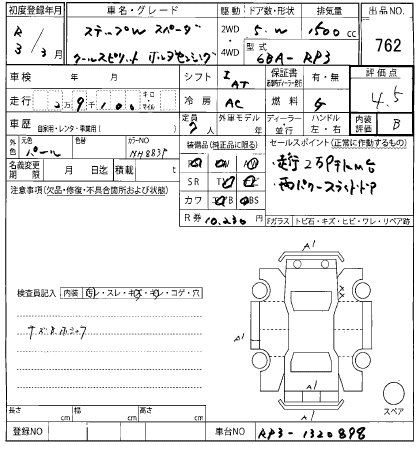 初度登録年月
車名・グレード
駆動
ドア数・形状
排気量
出品NO.
R 3/3月
ステップW スパーダ
クールスピリット ホンダセンシング
2WD
4WD
5.W
1500cc
型式
6BA-RP3
762
車検 年 月
シフト
I AT
保証書
有・無
評価点
4.5
走行 2万9千100
キロ
マイル
冷房
AC
燃料
G
車歴
自家用・レンタ・事業用( )
定員
7人
外車モデル
年
ディーラー・並行
ハンドル
左・右
内装評価
B
外色
元色
パール
色替
カラーNO
NH883P
装備品(純正品に限る)
セールスポイント(正常に作動するもの)
名義変更期限
月 日迄
積載
t
SR
カワ
R券 10,230円
・走行2万9千km台
・両パワースライドドア
注意事項(欠品・修復・不具合箇所および状態)
Fガラス
トビ石・キズ・ヒビ・ワレ・リペア跡
A1
A1
A1
A1
検査員記入
内装
・スレ・キズ・キレ・コゲ・穴
スペア
長さ cm
幅 cm
高さ cm
登録NO
車台NO
RP3-1320898